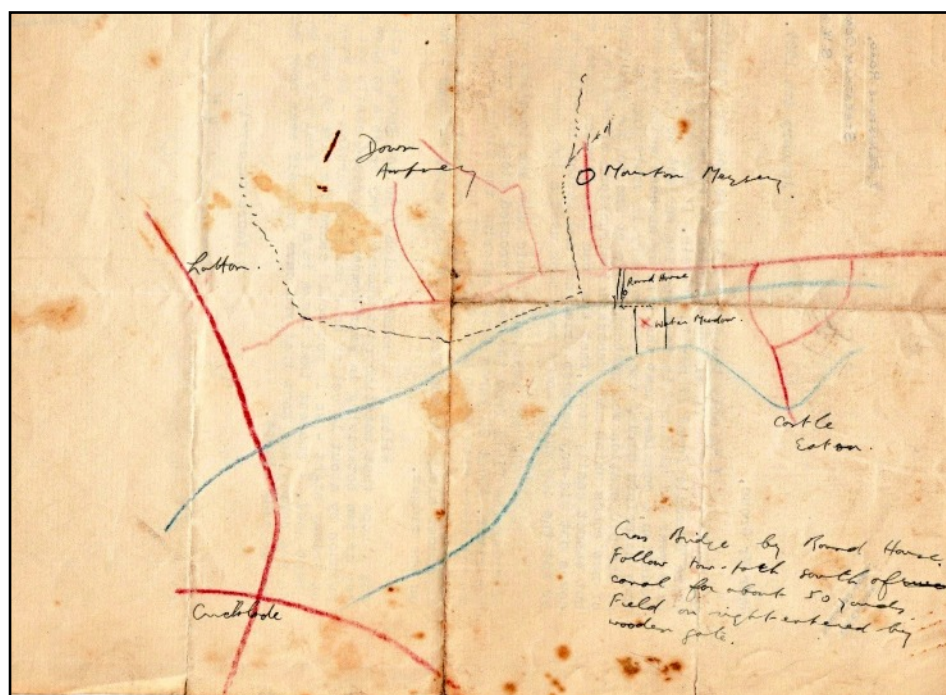 Down
Ampney
Meysey
Latton.
Round House
Water Meadow.
Castle
Eaton.
Cross Bridge by Round House.
Follow tow-path south of
canal for about 50 yards
Field on right entered by
wooden gate.